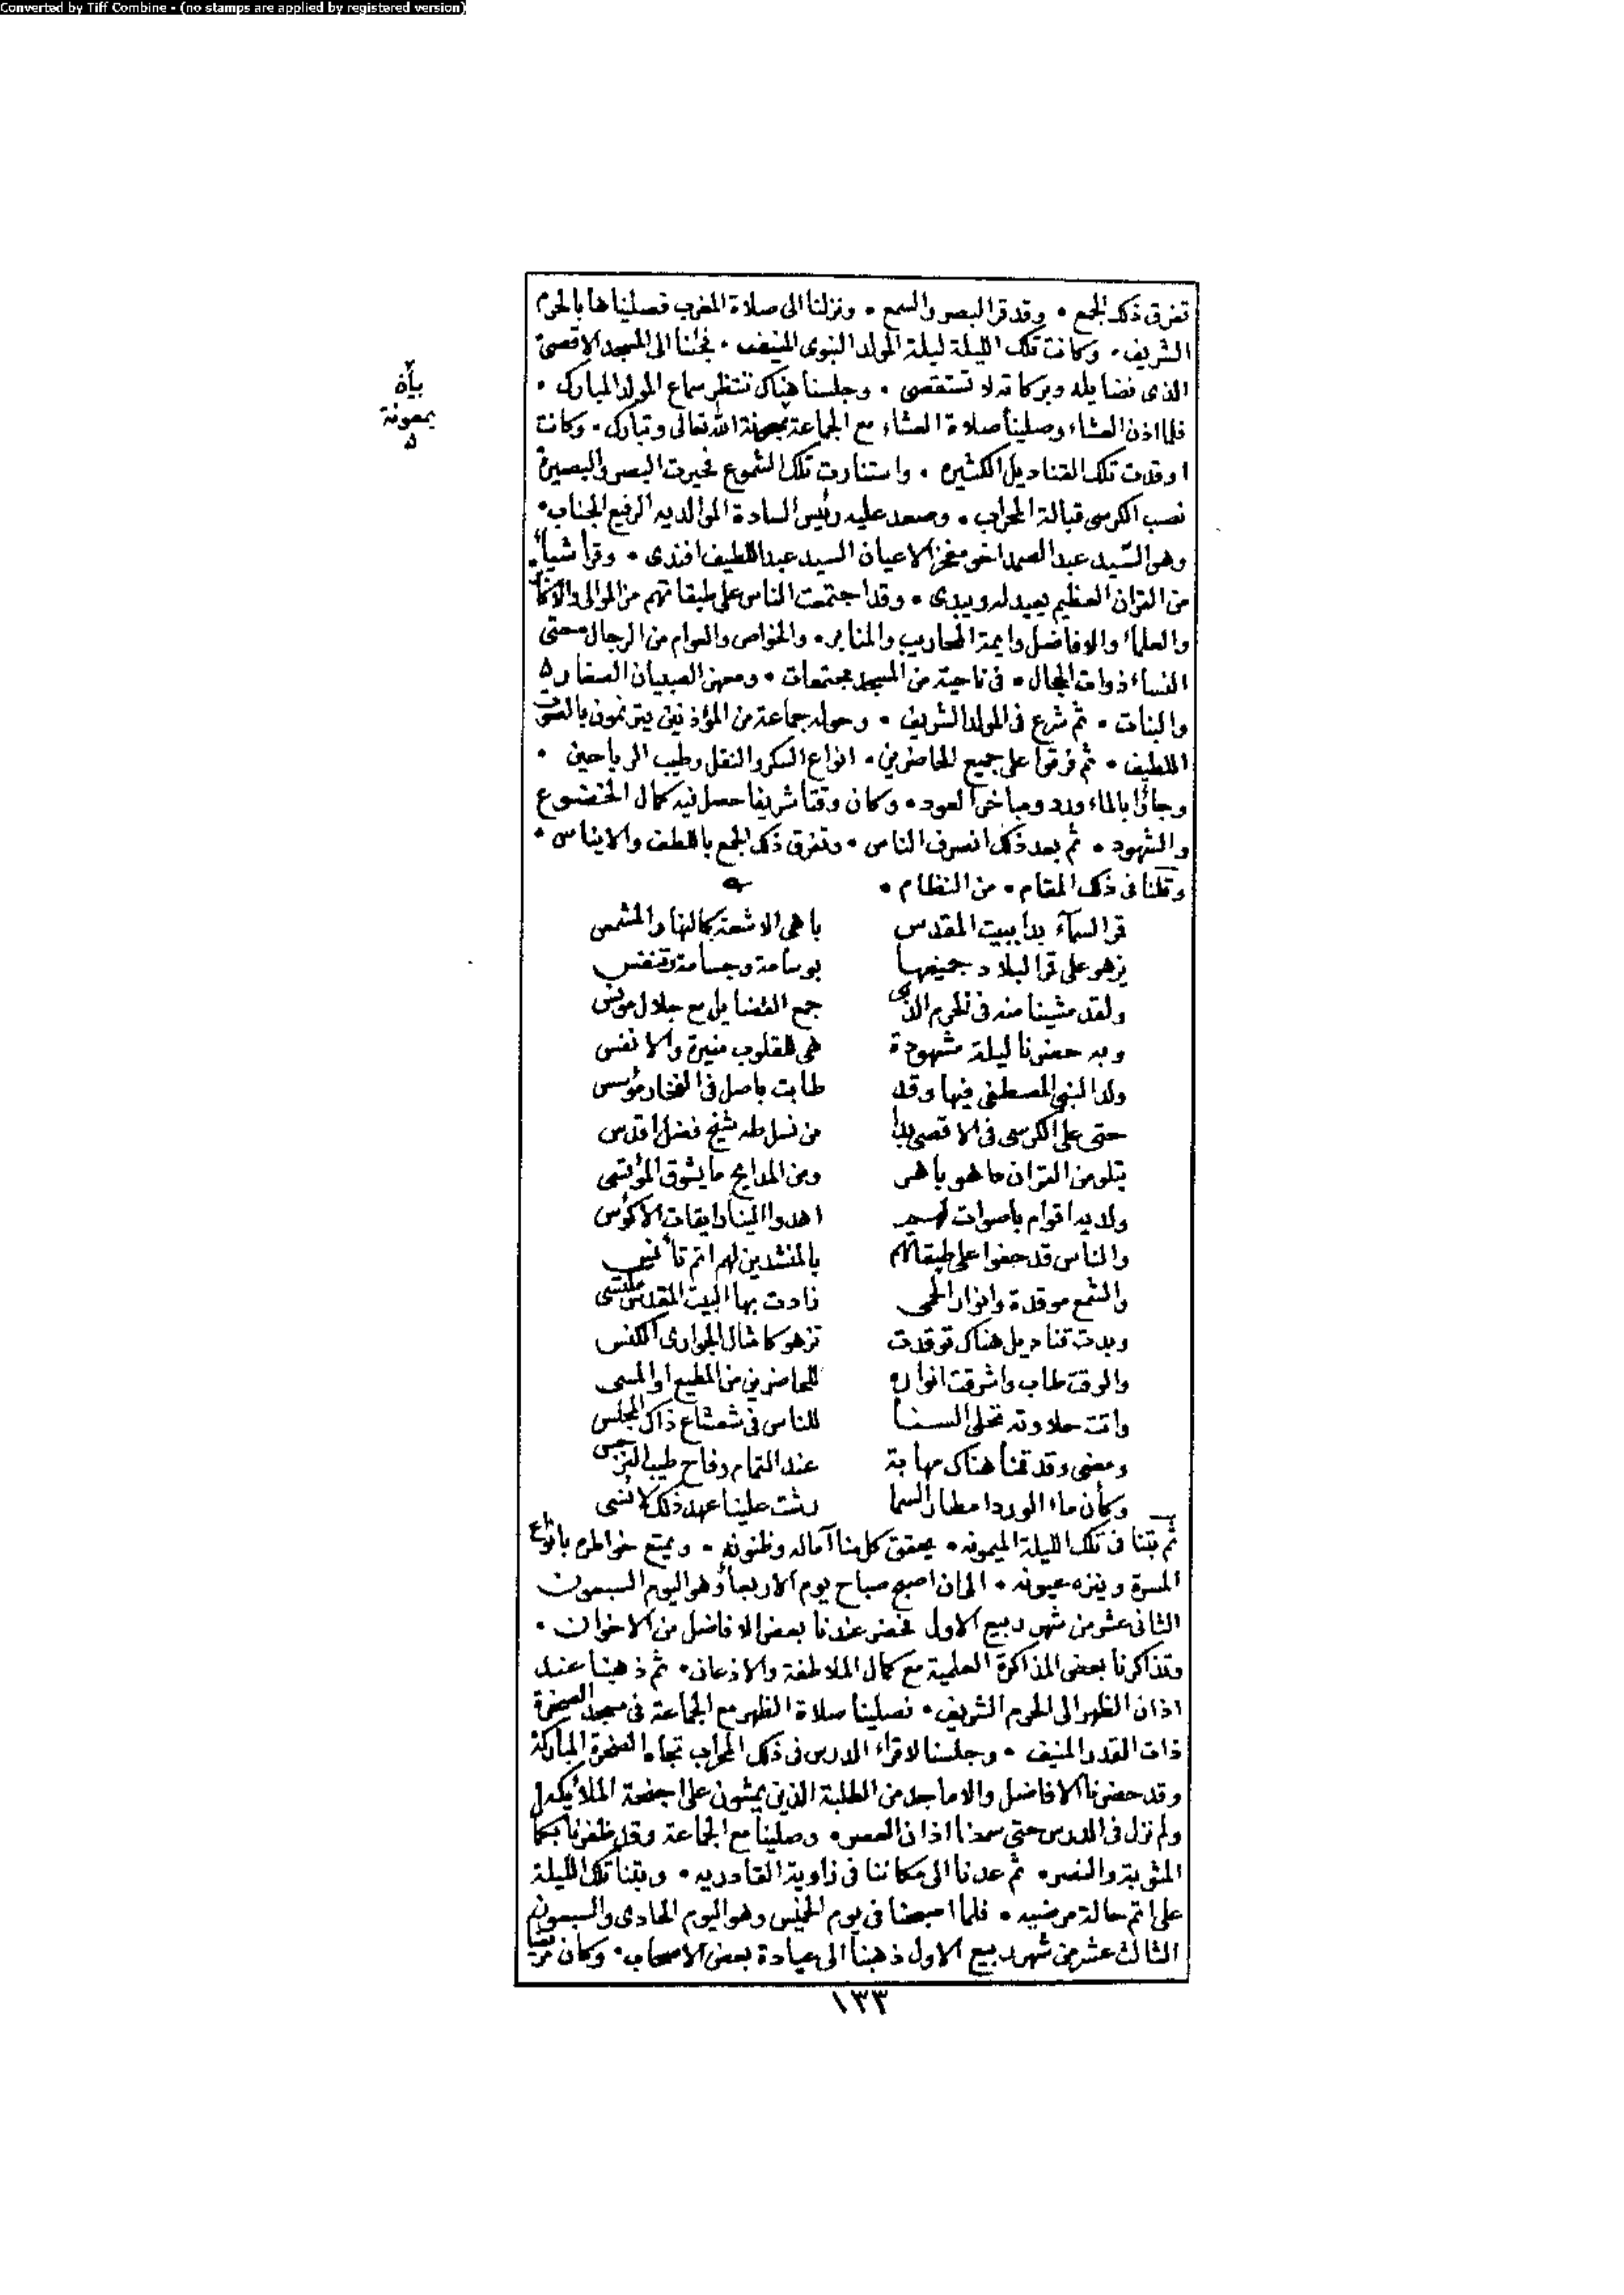 Converted by Tiff Combine - (no stamps are applied by registered version)
تفرق ذلك الجمع • وقد قر البصر والسمع • ونزلنا الى صلاة المغرب فصليناها بالحرم
الشريف • وكانت تلك الليلة ليلة المولد النبوى المنيف • فجئنا الى المسجد الاقصى
الذى فضايله وبركاته لا تستقصى • وجلسنا هناك ننتظر سماع المولد المبارك •
بيان
بمعونة
فلما اذن العشاء وصلينا صلاة العشاء مع الجماعة بمعونة الله تعالى وتبارك • وكانت
اوقدت تلك القناديل الكثيره • واستنارت تلك الشموع فحيرت البصر والبصيرة
نصب الكرسى قبالة المحراب • وصعد عليه رئيس السادة الموالديه الرفيع الجناب •
وهو السيد عبد الصمد اخو مفخر الاعيان السيد عبد اللطيف افندى • وقرا شيأ
من القران العظيم يعيد له ويبدى • وقد اجتمعت الناس على طبقاتهم من الموالى والاكابر
والعلماء والافاضل وايمة المحاريب والمنابر • والخواص والعوام من الرجال حتى
النساء ذوات الحجال • فى ناحية من المسجد مجتمعات • ومعهن الصبيان الصغار
والبنات • ثم شرع فى المولد الشريف • وحوله جماعة من المؤذنين يترنمون بالصوت
اللطيف • ثم فرقوا على جميع الحاضرين • انواع السكر والنقل وطيب الرياحين •
وجاؤا بالماء ورد ومباخر العود • وكان وقتا شريفا حصل فيه كمال الخضوع
والشهود • ثم بعد ذلك انصرف الناس • وتفرق ذلك الجمع باللطف والايناس •
وقلنا فى ذلك المقام • من النظام •
قمر السماء بدا ببيت المقدس باهى الاشعة كالنهار المشمس
يزهو على قمر البلاد جميعها بوسامة وجسامة وتنفس
ولقد مشينا منه فى الحرم الذى جمع الفضايل مع جلال مونس
وبه حضرنا ليلة مشهودة هى للقلوب منيرة والانفس
ولد النبى المصطفى فيها وقد طابت باصل فى الفخار مؤسس
حتى على الكرسى فى الاقصى بدا من نسل طه شيخ فضل اقدس
يتلو من القران ما هو باهر ومن المدايح ما يشوق المؤتسى
ولديه اقوام باصوات لهم اهدوا الينا رايقات الاكؤس
والناس قد حضوا على طبقاتهم بالمنشدين لهم اتم تأنس
والشمع موقدة وانوار الحمى زادت بها البيت المقدس مكتسى
وبدت قناديل هناك توقدت تزهو كامثال الجوارى الكنس
والوقت طاب واشرقت انواره للحاضرين من المطيع او المسى
واتت حلاوته تحلى السنا للناس فى شعشاع ذاك المجلس
ومضى وقد قمنا هناك مهابة عند التمام وفاح طيب النرجس
وكأن ماء الورد امطار السما رشت علينا عهد ذلك لا نسى
ثم بتنا فى تلك الليلة الميمونه • يحقق كل منا آماله وظنونه • ويمتع خواطره بانواع
المسرة وينزه عيونه • الى ان اصبح صباح يوم الاربعاء وهو اليوم السبعون
الثانى عشر من شهر ربيع الاول فحضر عندنا بعض الافاضل من الاخوان •
وتذاكرنا بعض المذاكرة العلمية مع كمال الملاطفة والاذعان • ثم ذهبنا عند
اذان الظهر الى الحرم الشريف • فصلينا صلاة الظهر مع الجماعة فى مسجد الصخرة
ذات القدر المنيف • وجلسنا لاقراء الدرس فى ذلك المحراب تجاه الصخرة المباركة
وقد حضرنا الافاضل والاماجد من الطلبة الذين يمشون على اجنحة الملائكة
ولم نزل فى الدرس حتى سمعنا اذان العصر • وصلينا مع الجماعة وقد ظفرنا بكمال
المثوبة والنصر • ثم عدنا الى مكاننا فى زاوية القادريه • وبتنا تلك الليلة
على اتم حالة مرضيه • فلما اصبحنا فى يوم الخميس وهو اليوم الحادى والسبعون
الثالث عشر من شهر ربيع الاول ذهبنا الى عيادة بعض الاصحاب • وكان مريضا
١٣٣